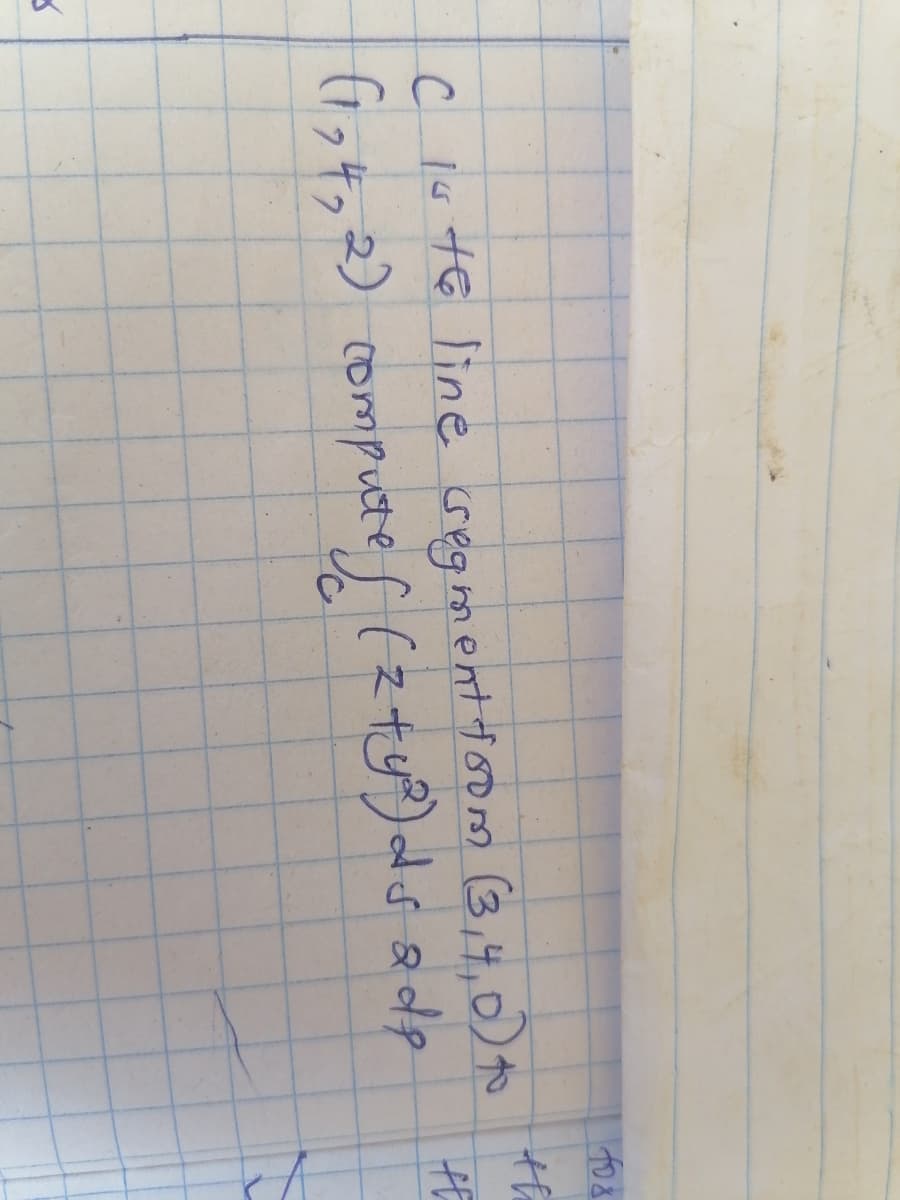 C is te line segment from (3,4,0) to
(1,4,2) compute ∫c (z+y²)ds 2dp